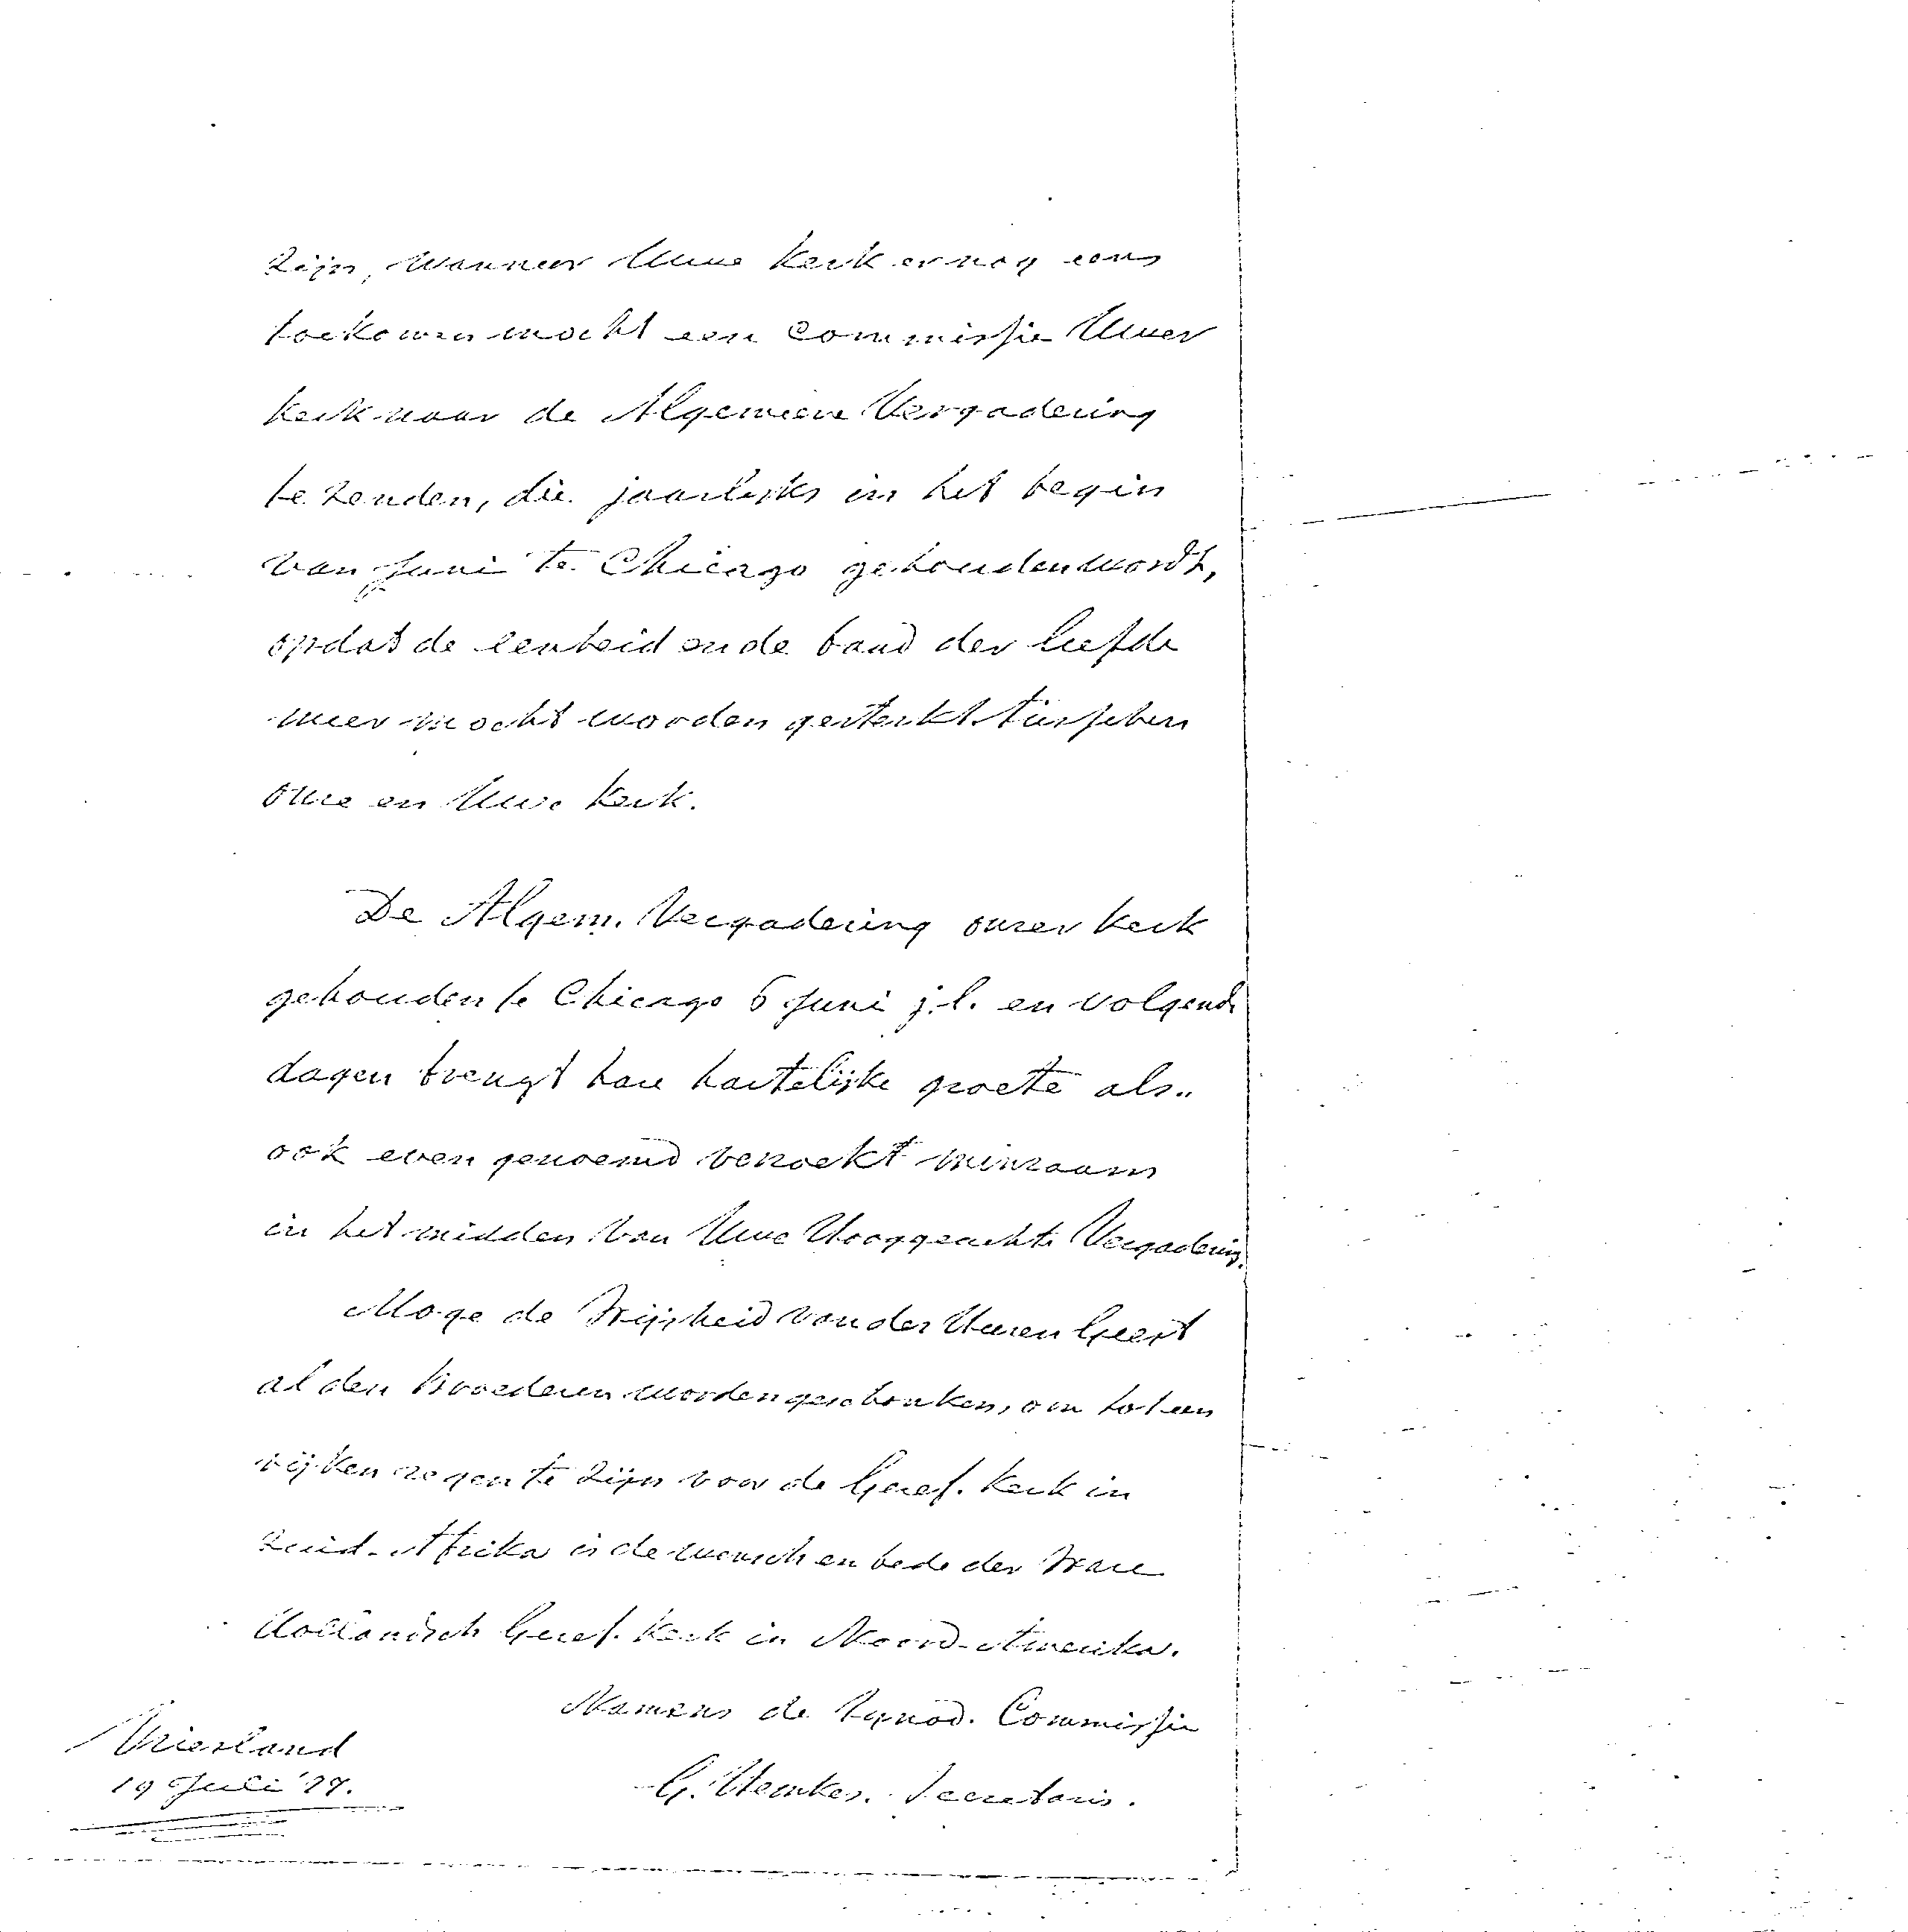 zijn, wanneer Uwe kerk er nog eens
toekomen mocht een commissie Uwer
kerk naar de Algemeene Vergadering
te zenden, die jaarlijks in het begin
van Juni te Chicago gehouden wordt,
opdat de eenheid en de band der liefde
meer mocht worden gesterkt tusschen
onze en Uwe kerk.
De Algem. Vergadering onzer kerk
gehouden te Chicago 6 Juni j.l. en volgende
dagen brengt hare hartelijke groete als..
ook even genoemd verzoekt minzaam
in het midden van Uwe Hooggeachte Vergadering.
Moge de Wijsheid van den Heiligen Geest
al den Broederen worden geschonken, om tot een
rijken zegen te zijn voor de Geref. kerk in
Zuid-Afrika is de wensch en bede der Ware
Hollandsch Geref. Kerk in Noord-Amerika.
Namens de Synod. Commissie
Vriesland
19 Juli
G. Hemkes. Secretaris.